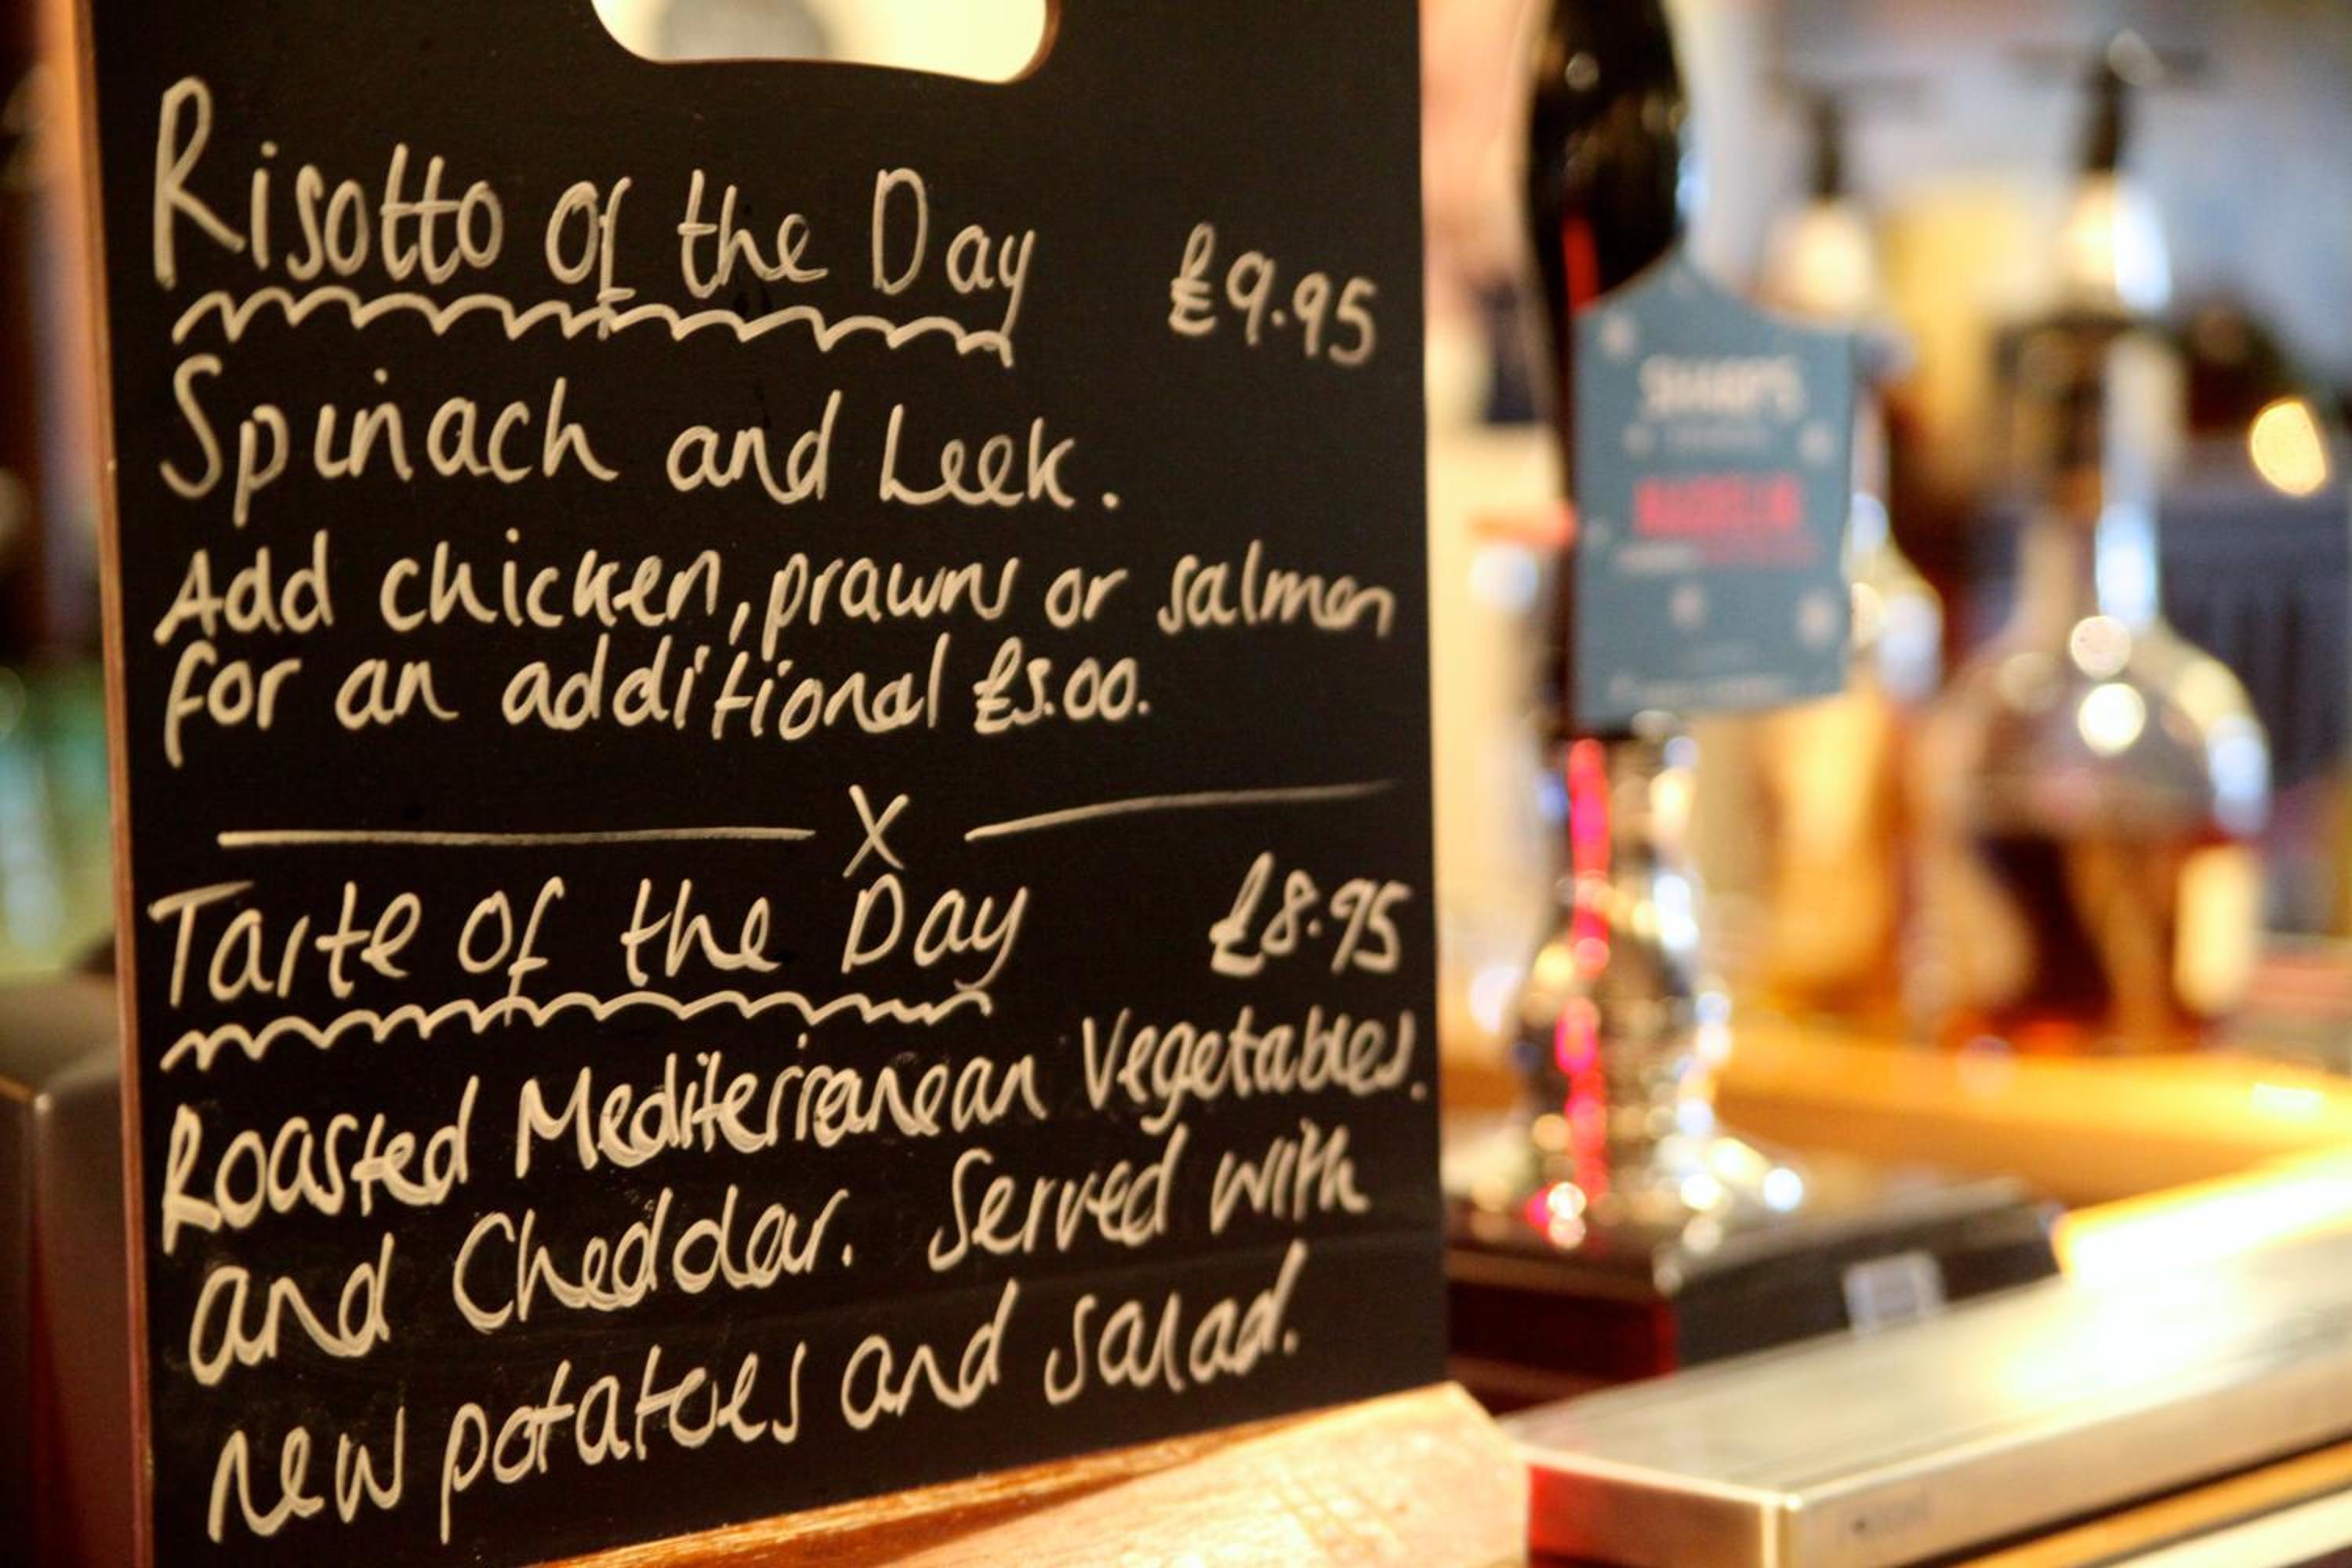 Risotto of the Day £9.95
Spinach and Leek.
Add chicken, prawns or salmon
for an additional £3.00.
X
Tarte of the Day £8.95
Roasted Mediterranean Vegetables.
and Cheddar. Served with
new potatoes and salad.
SHARP'S